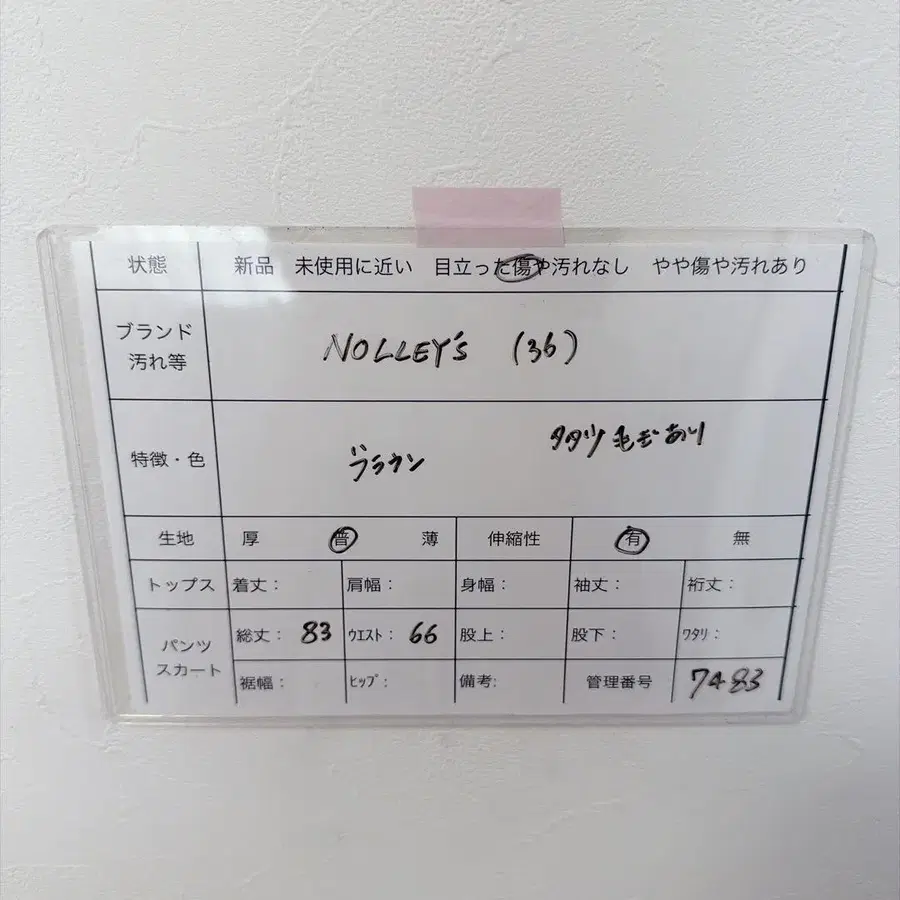 状態 新品 未使用に近い 目立った傷や汚れなし やや傷や汚れあり
ブランド
汚れ等
NOLLEY'S (36)
特徴・色
ブラウン
あり
生地 厚 普 薄 伸縮性 有 無
トップス 着丈: 肩幅: 身幅: 袖丈: 裄丈:
パンツ
スカート
総丈: 83 ウエスト: 66 股上: 股下: ワタリ:
裾幅: ヒップ: 備考: 管理番号 7483